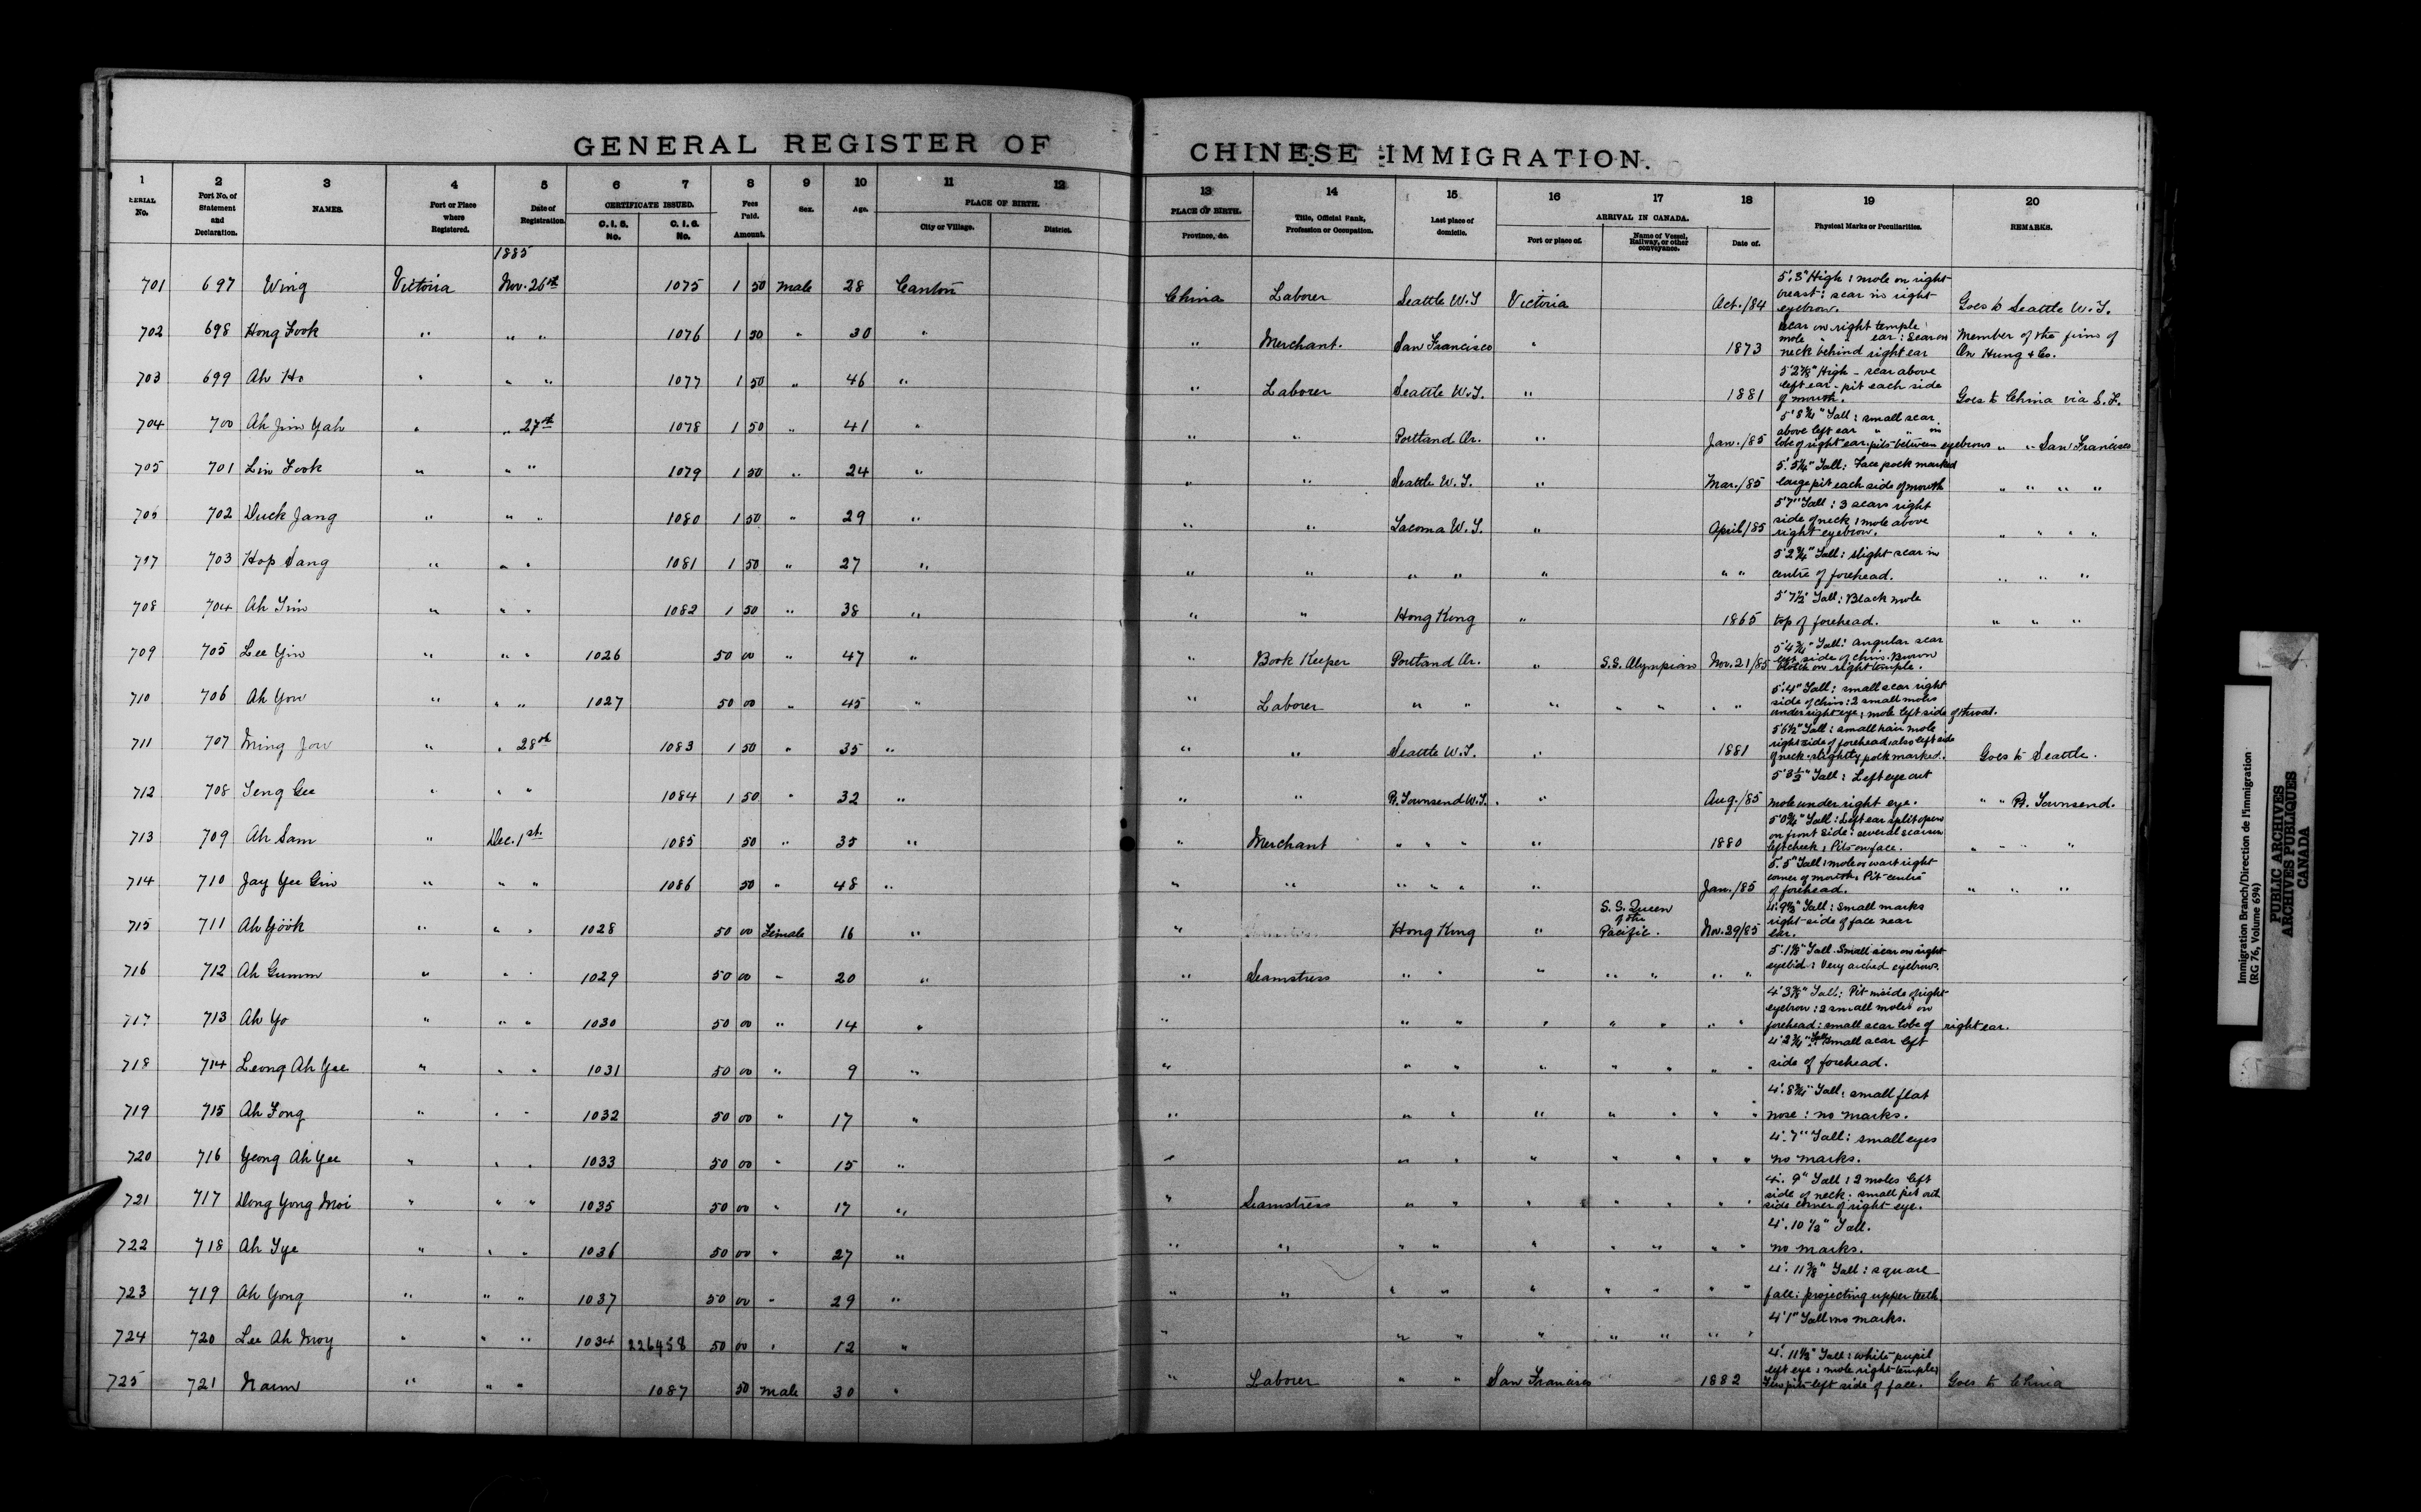 GENERAL REGISTER OF CHINESE IMMIGRATION.
1 2 3 4 5 6 7 8 9 10 11 12 13 14 15 16 17 18 19 20
SERIAL No. | Port No. of Statement and Declaration. | NAMES. | Port or Place where Registered. | Date of Registration. | CERTIFICATE ISSUED. C.I.5. No. | C.I.6. No. | Fees Paid. Amount. | Sex. | Age. | PLACE OF BIRTH. City or Village. | District. | PLACE OF BIRTH. Province, &c. | Title, Official Rank, Profession or Occupation. | Last place of domicile. | ARRIVAL IN CANADA. Port or place of. | Name of Vessel, Railway, or other conveyance. | Date of. | Physical Marks or Peculiarities. | REMARKS.
1885
701 697 Wing Victoria Nov. 26th 1075 1 50 Male 28 Canton China Laborer Seattle W.T Victoria Oct./84 5'.8" High : mole on right breast : scar in right eyebrow. Goes to Seattle W.T.
702 698 Hong Fook " " " 1076 1 50 " 30 " " Merchant. San Francisco " 1873 Scar on right temple mole " " ear : Scar on neck behind right ear Member of the firm of On Hung & Co.
703 699 Ah Ho " " " 1077 1 50 " 46 " " Laborer Seattle W.T. " 1881 High - scar above left ear - pit each side of mouth. Goes to China via S.F.
704 700 Ah Jim Yah " " 27th 1078 1 50 " 41 " " " Portland Or. " Jan./85 Tall : small scar above left ear " " in lobe of right ear. pits between eyebrows " " San Francisco
705 701 Lin Fook " " " 1079 1 50 " 24 " " " Seattle W.T. " Mar./85 Tall : Face pock marked large pit each side of mouth " " " "
706 702 Duck Jang " " " 1080 1 50 " 29 " " " Tacoma W.T. " April/85 5'7" Tall : 3 scars right side of neck : mole above right eyebrow. " " " "
707 703 Hop Sang " " " 1081 1 50 " 27 " " " " " " " " Tall : slight scar in centre of forehead. " " "
708 704 Ah Tim " " " 1082 1 50 " 38 " " " Hong Kong " 1865 5'7½" Tall : Black mole top of forehead. " " "
709 705 Lee Yin " " " 1026 50 00 " 47 " " Book Keeper Portland Or. " S.S. Olympian Nov. 21/85 Tall : angular scar left side of chin. Brown blotch on right temple.
710 706 Ah Yow " " " 1027 50 00 " 45 " " Laborer " " " " " " " 5'.4" Tall : small scar right side of chin : 2 small moles under right eye : mole left side of throat.
711 707 Ming Jow " " 28th 1083 1 50 " 35 " " " Seattle W.T. " 1881 5'6½" Tall : small hair mole right side of forehead, also left side of neck. slightly pock marked. Goes to Seattle.
712 708 Seng Gee " " " 1084 1 50 " 32 " " " Pt. Townsend W.T. " Aug./85 Tall : Left eye out mole under right eye. " " Pt. Townsend.
713 709 Ah Sam " Dec. 1st. 1085 50 " 35 " " Merchant " " " " 1880 Tall : Left ear split open on front side : several scars on left cheek : Pits on face. " " " "
714 710 Jay Yee Gin " " " 1086 50 " 48 " " " " " " " Jan./85 5'. 5" Tall : mole or wart right corner of mouth. Pit centre of forehead. " " "
715 711 Ah Gook " " " 1028 50 00 Female 16 " " Hong Kong " S.S. Queen of the Pacific. Nov. 29/85 Tall : Small marks right side of face near ear.
716 712 Ah Gumm " " " 1029 50 00 " 20 " " Seamstress " " " " " " " Tall. Small scar on right eyelid : Very arched eyebrows.
717 713 Ah Yo " " " 1030 50 00 " 14 " " " " " " " " " Tall : Pit inside of right eyebrow : 2 small moles on forehead : small scar lobe of right ear.
718 714 Leong Ah Yee " " " 1031 50 00 " 9 " " " " " " " " " Tall small scar left side of forehead.
719 715 Ah Fong " " " 1032 50 00 " 17 " " " " " " " " " Tall : small flat nose : no marks.
720 716 Yeong Ah Yee " " " 1033 50 00 " 15 " " " " " " " " " 4'. 7" Tall : small eyes no marks.
721 717 Dong Yong Moi " " " 1035 50 00 " 17 " " Seamstress " " " " " " " 4'. 9" Tall : 2 moles left side of neck : small pit out side corner of right eye.
722 718 Ah Tye " " " 1036 50 00 " 27 " " " " " " " " " " 4'. 10 ½" Tall. no marks.
723 719 Ah Yong " " " 1037 50 00 " 29 " " " " " " " " " " Tall : square face : projecting upper teeth.
724 720 Lee Ah Moy " " " 1034 226458 50 00 " 12 " " " " " " " " " 4'1" Tall no marks.
725 721 Naim " " " 1087 50 Male 30 " " Laborer " " San Francisco 1882 Tall : white pupil left eye : mole right temple : Few pits left side of face. Goes to China
Immigration Branch/Direction de l'immigration
(RG 76, Volume 694)
PUBLIC ARCHIVES
ARCHIVES PUBLIQUES
CANADA